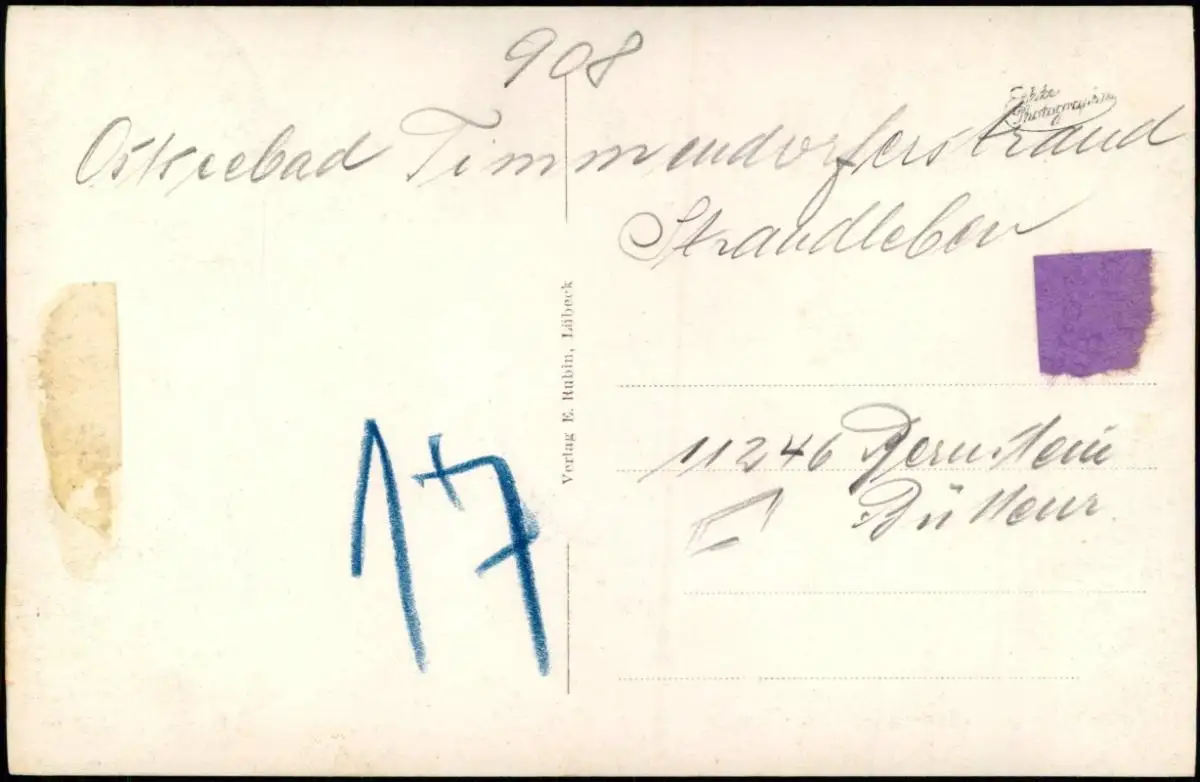 908
Echte
Photographie
Ostseebad Timmendorferstrand
Strandleben
Verlag E. Rubin, Lübeck
11246 Bernstein
Bütten
17